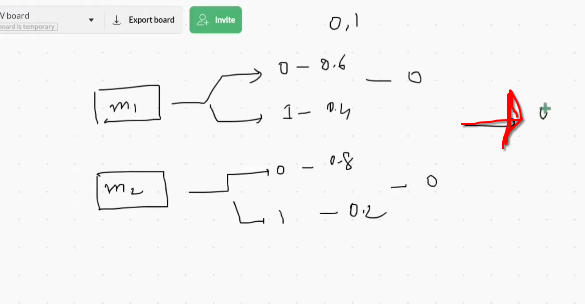 V board
board is temporary
Export board
Invite
0,1
0 - 0.6 - 0
m1
1 - 0.4
0
0 - 0.8
m2 - 0
1 - 0.2